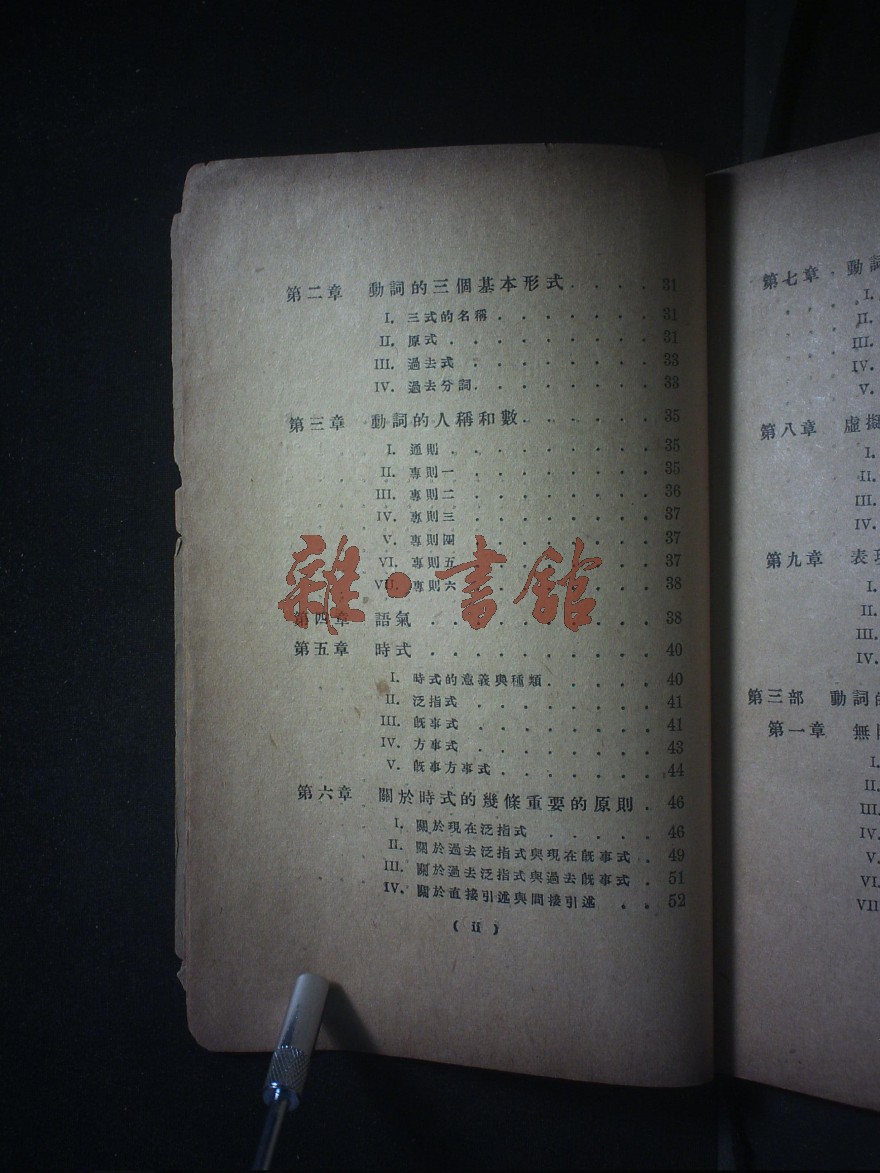 第二章 動詞的三個基本形式 . . . . 31
I. 三式的名稱 . . . . . . . 31
II. 原式 . . . . . . . . 31
III. 過去式 . . . . . . . . 33
IV. 過去分詞 . . . . . . . . 33
第三章 動詞的人稱和數 . . . . . . 35
I. 通則 . . . . . . . . . 35
II. 專則一 . . . . . . . . 35
III. 專則二 . . . . . . . . 36
IV. 專則三 . . . . . . . . 37
V. 專則四 . . . . . . . . 37
VI. 專則五 . . . . . . . . 37
VII. 專則六 . . . . . . . . 38
第四章 語氣 . . . . . . . . . 38
第五章 時式 . . . . . . . . . 40
I. 時式的意義與種類 . . . . . 40
II. 泛指式 . . . . . . . . 41
III. 旣事式 . . . . . . . . 41
IV. 方事式 . . . . . . . . 43
V. 旣事方事式 . . . . . . . 44
第六章 關於時式的幾條重要的原則 . 46
I. 關於現在泛指式 . . . . . 46
II. 關於過去泛指式與現在旣事式 . 49
III. 關於過去泛指式與過去旣事式 . 51
IV. 關於直接引述與間接引述 . . 52
( II )
雜·書館
第七章 動詞
I.
II.
III.
IV.
V.
第八章 虛擬
I.
II.
III.
IV.
第九章 表
I.
II.
III.
IV.
第三部 動詞
第一章 無
I.
II.
III.
IV.
V.
VI.
VII